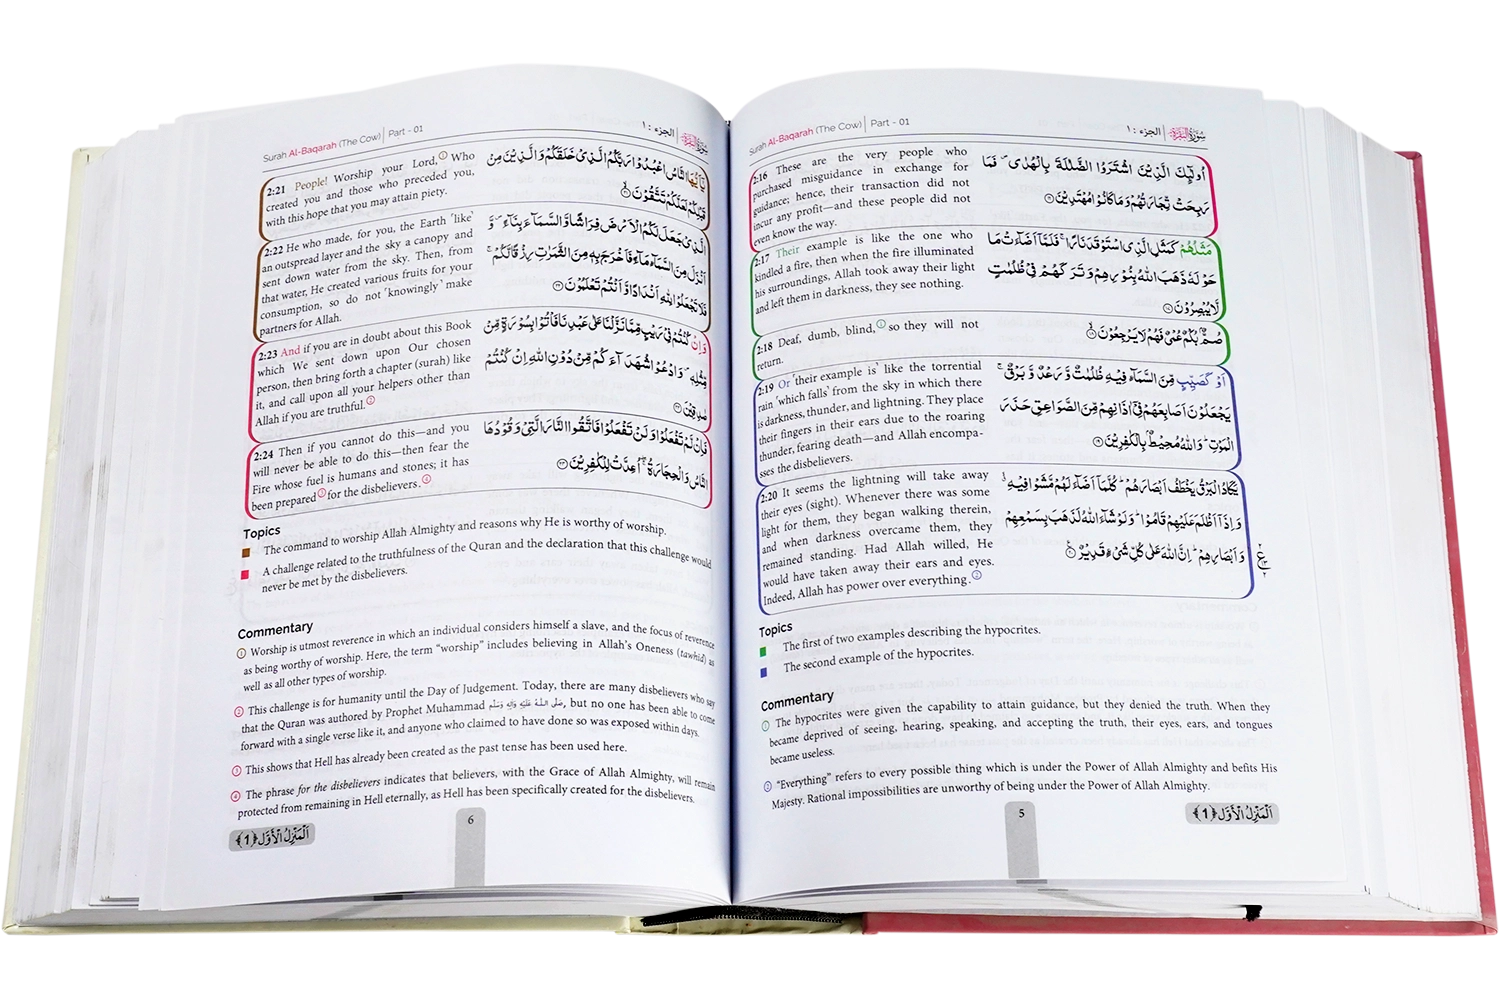 Surah Al-Baqarah (The Cow) | Part - 01
الجزء : ١
سُوْرَةُ الْبَقَرَة
2:16 These are the very people who
purchased misguidance in exchange for
guidance; hence, their transaction did not
incur any profit—and these people did not
even know the way.
اُولٰٓئِكَ الَّذِیْنَ اشْتَرَوُا الضَّلٰلَةَ بِالْهُدٰى ۪ فَمَا
رَبِحَتْ تِّجَارَتُهُمْ وَمَا كَانُوْا مُهْتَدِیْنَ ﴿۱۶﴾
2:17 Their example is like the one who
kindled a fire, then when the fire illuminated
his surroundings, Allah took away their light
and left them in darkness, they see nothing.
مَثَلُهُمْ كَمَثَلِ الَّذِى اسْتَوْقَدَ نَارًا ۚ فَلَمَّاۤ اَضَآءَتْ مَا
حَوْلَهٗ ذَهَبَ اللّٰهُ بِنُوْرِهِمْ وَتَرَكَهُمْ فِیْ ظُلُمٰتٍ
لَّا یُبْصِرُوْنَ ﴿۱۷﴾
2:18 Deaf, dumb, blind,① so they will not
return.
صُمٌّۢ بُكْمٌ عُمْیٌ فَهُمْ لَا یَرْجِعُوْنَ ﴿۱۸﴾
2:19 Or ‘their example is’ like the torrential
rain ‘which falls’ from the sky in which there
is darkness, thunder, and lightning. They place
their fingers in their ears due to the roaring
thunder, fearing death—and Allah encompa-
sses the disbelievers.
اَوْ كَصَیِّبٍ مِّنَ السَّمَآءِ فِیْهِ ظُلُمٰتٌ وَّرَعْدٌ وَّبَرْقٌ ۚ
یَجْعَلُوْنَ اَصَابِعَهُمْ فِیْۤ اٰذَانِهِمْ مِّنَ الصَّوَاعِقِ حَذَرَ
الْمَوْتِ ؕ وَاللّٰهُ مُحِیْطٌۢ بِالْكٰفِرِیْنَ ﴿۱۹﴾
2:20 It seems the lightning will take away
their eyes (sight). Whenever there was some
light for them, they began walking therein,
and when darkness overcame them, they
remained standing. Had Allah willed, He
would have taken away their ears and eyes.
Indeed, Allah has power over everything.②
یَكَادُ الْبَرْقُ یَخْطَفُ اَبْصَارَهُمْ ؕ كُلَّمَاۤ اَضَآءَ لَهُمْ مَّشَوْا فِیْهِ ۙ
وَاِذَاۤ اَظْلَمَ عَلَیْهِمْ قَامُوْا ؕ وَلَوْ شَآءَ اللّٰهُ لَذَهَبَ بِسَمْعِهِمْ
وَاَبْصَارِهِمْ ؕ اِنَّ اللّٰهَ عَلٰى كُلِّ شَیْءٍ قَدِیْرٌ ﴿۲۰﴾
Topics
The first of two examples describing the hypocrites.
The second example of the hypocrites.
Commentary
① The hypocrites were given the capability to attain guidance, but they denied the truth. When they
became deprived of seeing, hearing, speaking, and accepting the truth, their eyes, ears, and tongues
became useless.
② “Everything” refers to every possible thing which is under the Power of Allah Almighty and befits His
Majesty. Rational impossibilities are unworthy of being under the Power of Allah Almighty.
5
اَلْمَنْزِلُ الْاَوَّل ﴿1﴾
Surah Al-Baqarah (The Cow) | Part - 01
الجزء : ١
سُوْرَةُ الْبَقَرَة
2:21 People! Worship your Lord,① Who
created you and those who preceded you,
with this hope that you may attain piety.
یٰۤاَیُّهَا النَّاسُ اعْبُدُوْا رَبَّكُمُ الَّذِیْ خَلَقَكُمْ وَالَّذِیْنَ مِنْ
قَبْلِكُمْ لَعَلَّكُمْ تَتَّقُوْنَ ﴿۲۱﴾
2:22 He who made, for you, the Earth ‘like’
an outspread layer and the sky a canopy and
sent down water from the sky. Then, from
that water, He created various fruits for your
consumption, so do not ‘knowingly’ make
partners for Allah.
الَّذِیْ جَعَلَ لَكُمُ الْاَرْضَ فِرَاشًا وَّالسَّمَآءَ بِنَآءً ۪ وَّ
اَنْزَلَ مِنَ السَّمَآءِ مَآءً فَاَخْرَجَ بِهٖ مِنَ الثَّمَرٰتِ رِزْقًا لَّكُمْ ۚ
فَلَا تَجْعَلُوْا لِلّٰهِ اَنْدَادًا وَّاَنْتُمْ تَعْلَمُوْنَ ﴿۲۲﴾
2:23 And if you are in doubt about this Book
which We sent down upon Our chosen
person, then bring forth a chapter (surah) like
it, and call upon all your helpers other than
Allah if you are truthful.②
وَاِنْ كُنْتُمْ فِیْ رَیْبٍ مِّمَّا نَزَّلْنَا عَلٰى عَبْدِنَا فَاْتُوْا بِسُوْرَةٍ مِّنْ
مِّثْلِهٖ ۪ وَادْعُوْا شُهَدَآءَكُمْ مِّنْ دُوْنِ اللّٰهِ اِنْ كُنْتُمْ
صٰدِقِیْنَ ﴿۲۳﴾
2:24 Then if you cannot do this—and you
will never be able to do this—then fear the
Fire whose fuel is humans and stones; it has
been prepared③ for the disbelievers.④
فَاِنْ لَّمْ تَفْعَلُوْا وَلَنْ تَفْعَلُوْا فَاتَّقُوا النَّارَ الَّتِیْ وَقُوْدُهَا
النَّاسُ وَالْحِجَارَةُ ۖۚ اُعِدَّتْ لِلْكٰفِرِیْنَ ﴿۲۴﴾
Topics
The command to worship Allah Almighty and reasons why He is worthy of worship.
A challenge related to the truthfulness of the Quran and the declaration that this challenge would
never be met by the disbelievers.
Commentary
① Worship is utmost reverence in which an individual considers himself a slave, and the focus of reverence
as being worthy of worship. Here, the term “worship” includes believing in Allah’s Oneness (tawhid) as
well as all other types of worship.
② This challenge is for humanity until the Day of Judgement. Today, there are many disbelievers who say
that the Quran was authored by Prophet Muhammad صَلَّى اللهُ عَلَيْهِ وَاٰلِهٖ وَسَلَّم, but no one has been able to come
forward with a single verse like it, and anyone who claimed to have done so was exposed within days.
③ This shows that Hell has already been created as the past tense has been used here.
④ The phrase for the disbelievers indicates that believers, with the Grace of Allah Almighty, will remain
protected from remaining in Hell eternally, as Hell has been specifically created for the disbelievers.
6
اَلْمَنْزِلُ الْاَوَّل ﴿1﴾